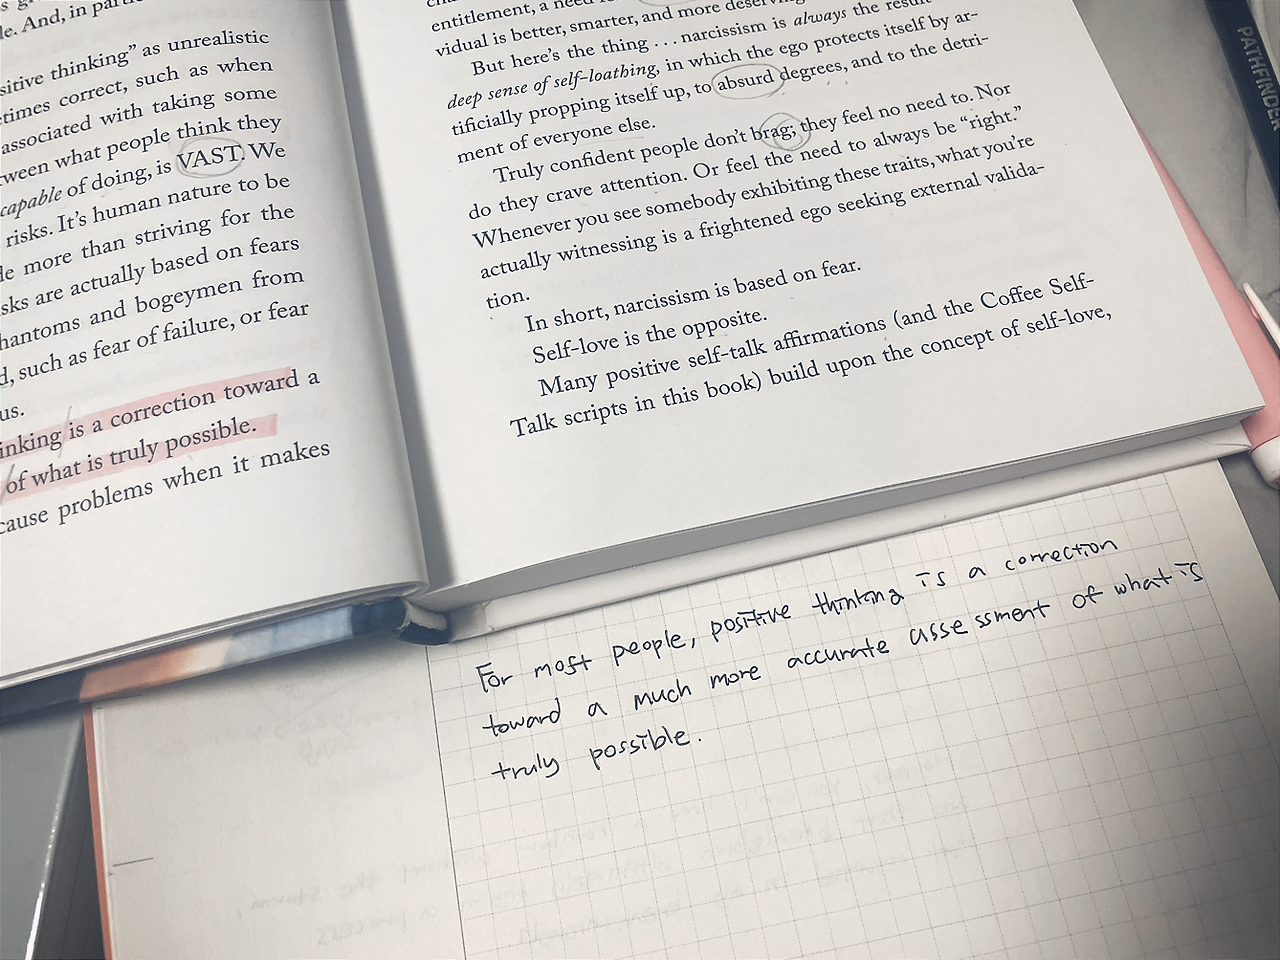 le. And, in
sitive thinking” as unrealistic
times correct, such as when
associated with taking some
ween what people think they
capable of doing, is VAST. We
risks. It’s human nature to be
le more than striving for the
sks are actually based on fears
hantoms and bogeymen from
d, such as fear of failure, or fear
us.
inking is a correction toward a
of what is truly possible.
cause problems when it makes
entitlement, a need
vidual is better, smarter, and more
But here’s the thing . . . narcissism is always the result
deep sense of self-loathing, in which the ego protects itself by ar-
tificially propping itself up, to absurd degrees, and to the detri-
ment of everyone else.
Truly confident people don’t brag; they feel no need to. Nor
do they crave attention. Or feel the need to always be “right.”
Whenever you see somebody exhibiting these traits, what you’re
actually witnessing is a frightened ego seeking external valida-
tion.
In short, narcissism is based on fear.
Self-love is the opposite.
Many positive self-talk affirmations (and the Coffee Self-
Talk scripts in this book) build upon the concept of self-love,
PATHFINDER
For most people, positive thinking is a correction
toward a much more accurate assessment of what is
truly possible.